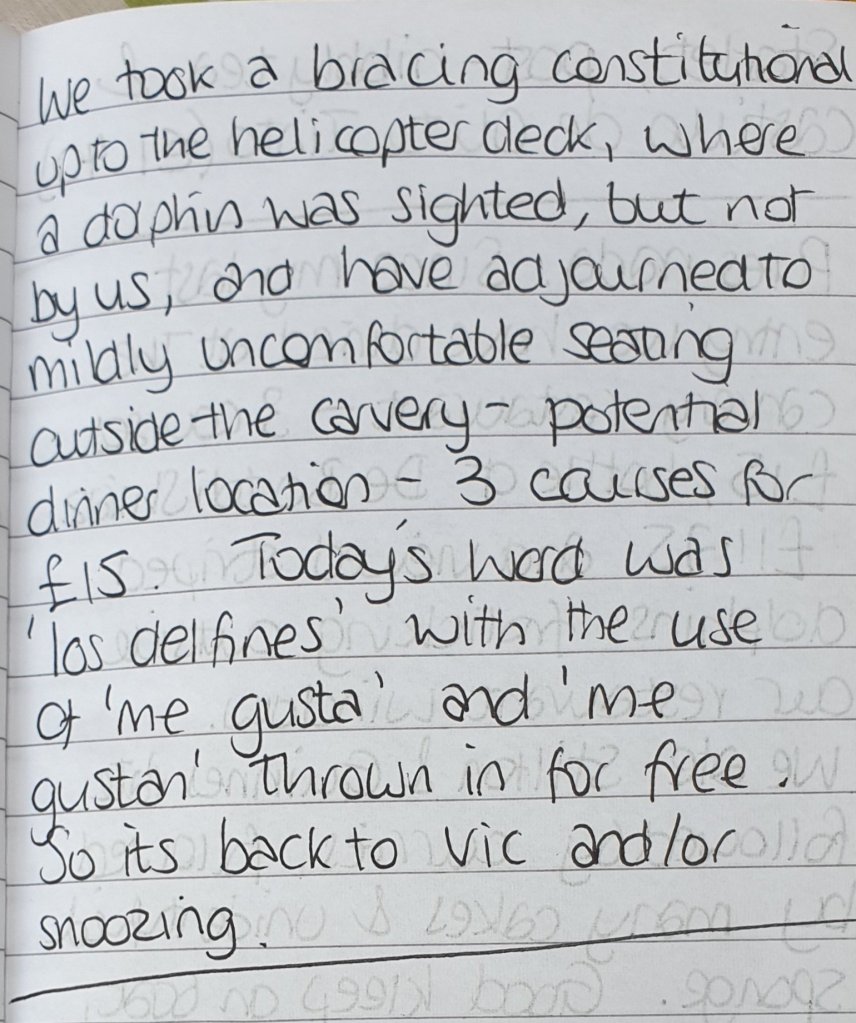 We took a bracing constitutional
up to the helicopter deck, where
a dolphin was sighted, but not
by us, and have adjourned to
mildly uncomfortable seating
outside the carvery - potential
dinner location - 3 courses for
£15. Today's word was
'los delfines' with the use
of 'me gusta' and 'me
gustan' thrown in for free.
So its back to Vic and/or
snoozing.